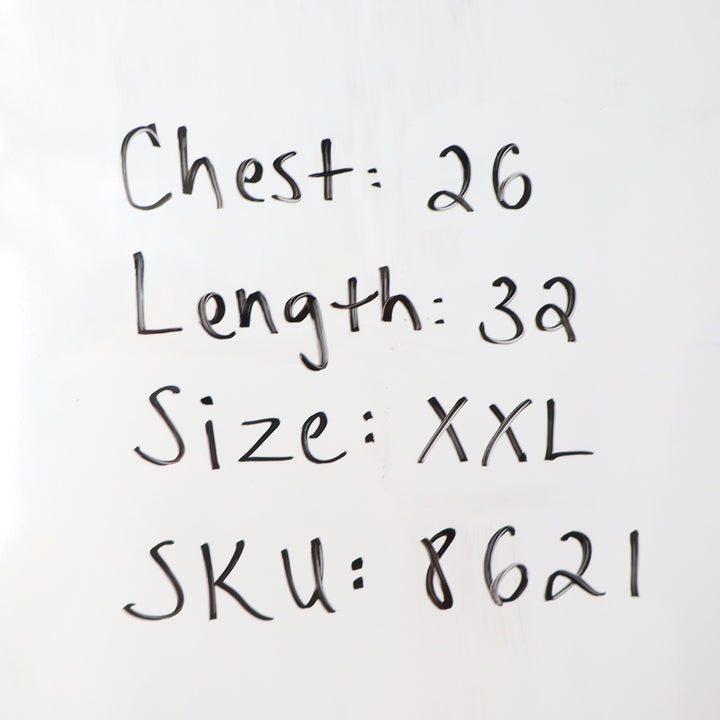 Chest: 26
Length: 32
Size: XXL
SKU: 8621